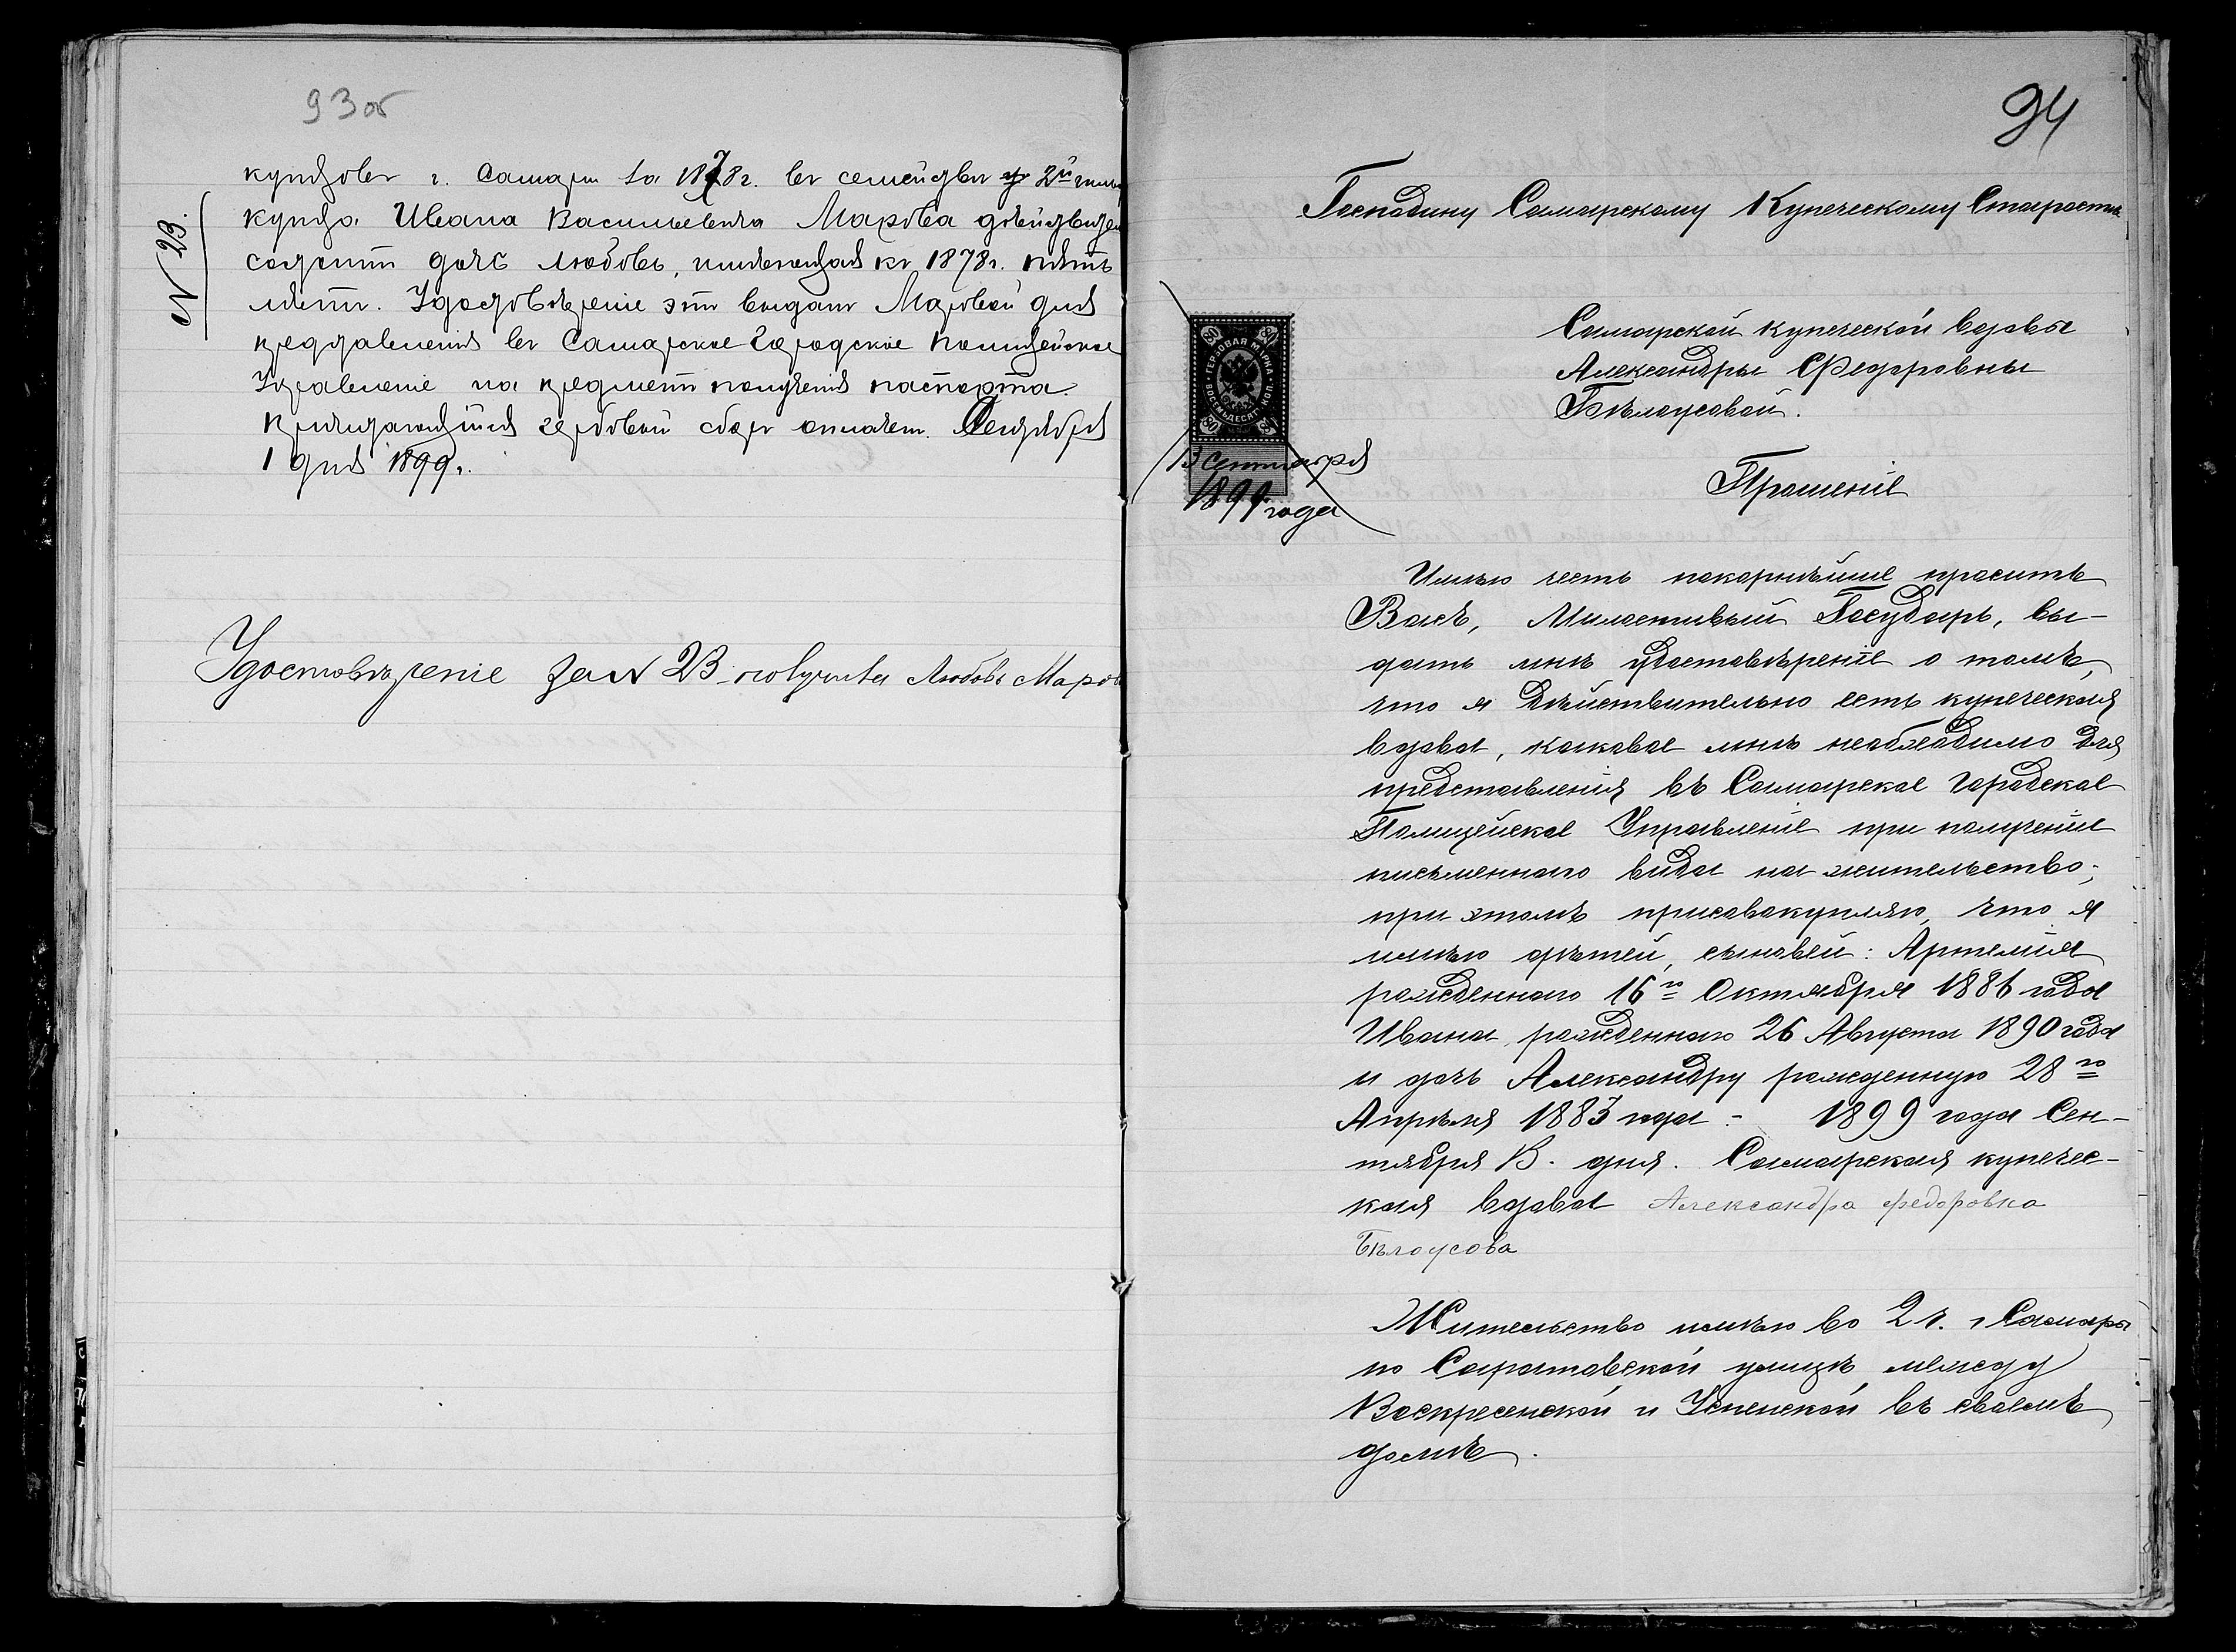 93 об
купцовъ г. Самары за 1878 г. въ семействѣ 2й гиль
купца Ивана Васильевича Марова дѣйствител
состоитъ дочь Любовь, имѣющая къ 1878 г. пять
лѣтъ. Удостовѣреніе это выдано Маровой для
представленія въ Самарское Городское Полицейское
Управленіе на предметъ полученія паспорта.
Причитающійся гербовый сборъ оплаченъ. Сентября
1 дня 1899 г.
N 23.
Удостовѣреніе за N 23 получила Любовь Маров
94
Господину Самарскому Купеческому Старостѣ
Самарской купеческой вдовы
Александры Ѳедоровны
Бѣлоусовой.
Прошеніе
ГЕРБОВАЯ МАРКА
ВОСЕМЬДЕСЯТ КОП.
80
13 Сентября
1899 года
Имѣю честь покорнѣйше просить
Васъ, Милостивый Государь, вы-
дать мнѣ удостовѣреніе о томъ,
что я дѣйствительно есть купеческая
вдова, каковое мнѣ необходимо для
представленія въ Самарское Городское
Полицейское Управленіе при полученіи
письменнаго вида на жительство;
при этомъ присовокупляю, что я
имѣю дѣтей, сыновей: Артемія
рожденнаго 16го Октября 1886 года
Ивана, рожденнаго 26 Августа 1890 года
и дочь Александру рожденную 28го
Апрѣля 1883 года - 1899 года Сен-
тября 13. дня. Самарская купечес-
кая вдова Александра Федоровна
Бѣлоусова
Жительство имѣю во 2 ч. г. Самары
по Саратовской улицѣ, между
Воскресенской и Успенской въ своемъ
домѣ.